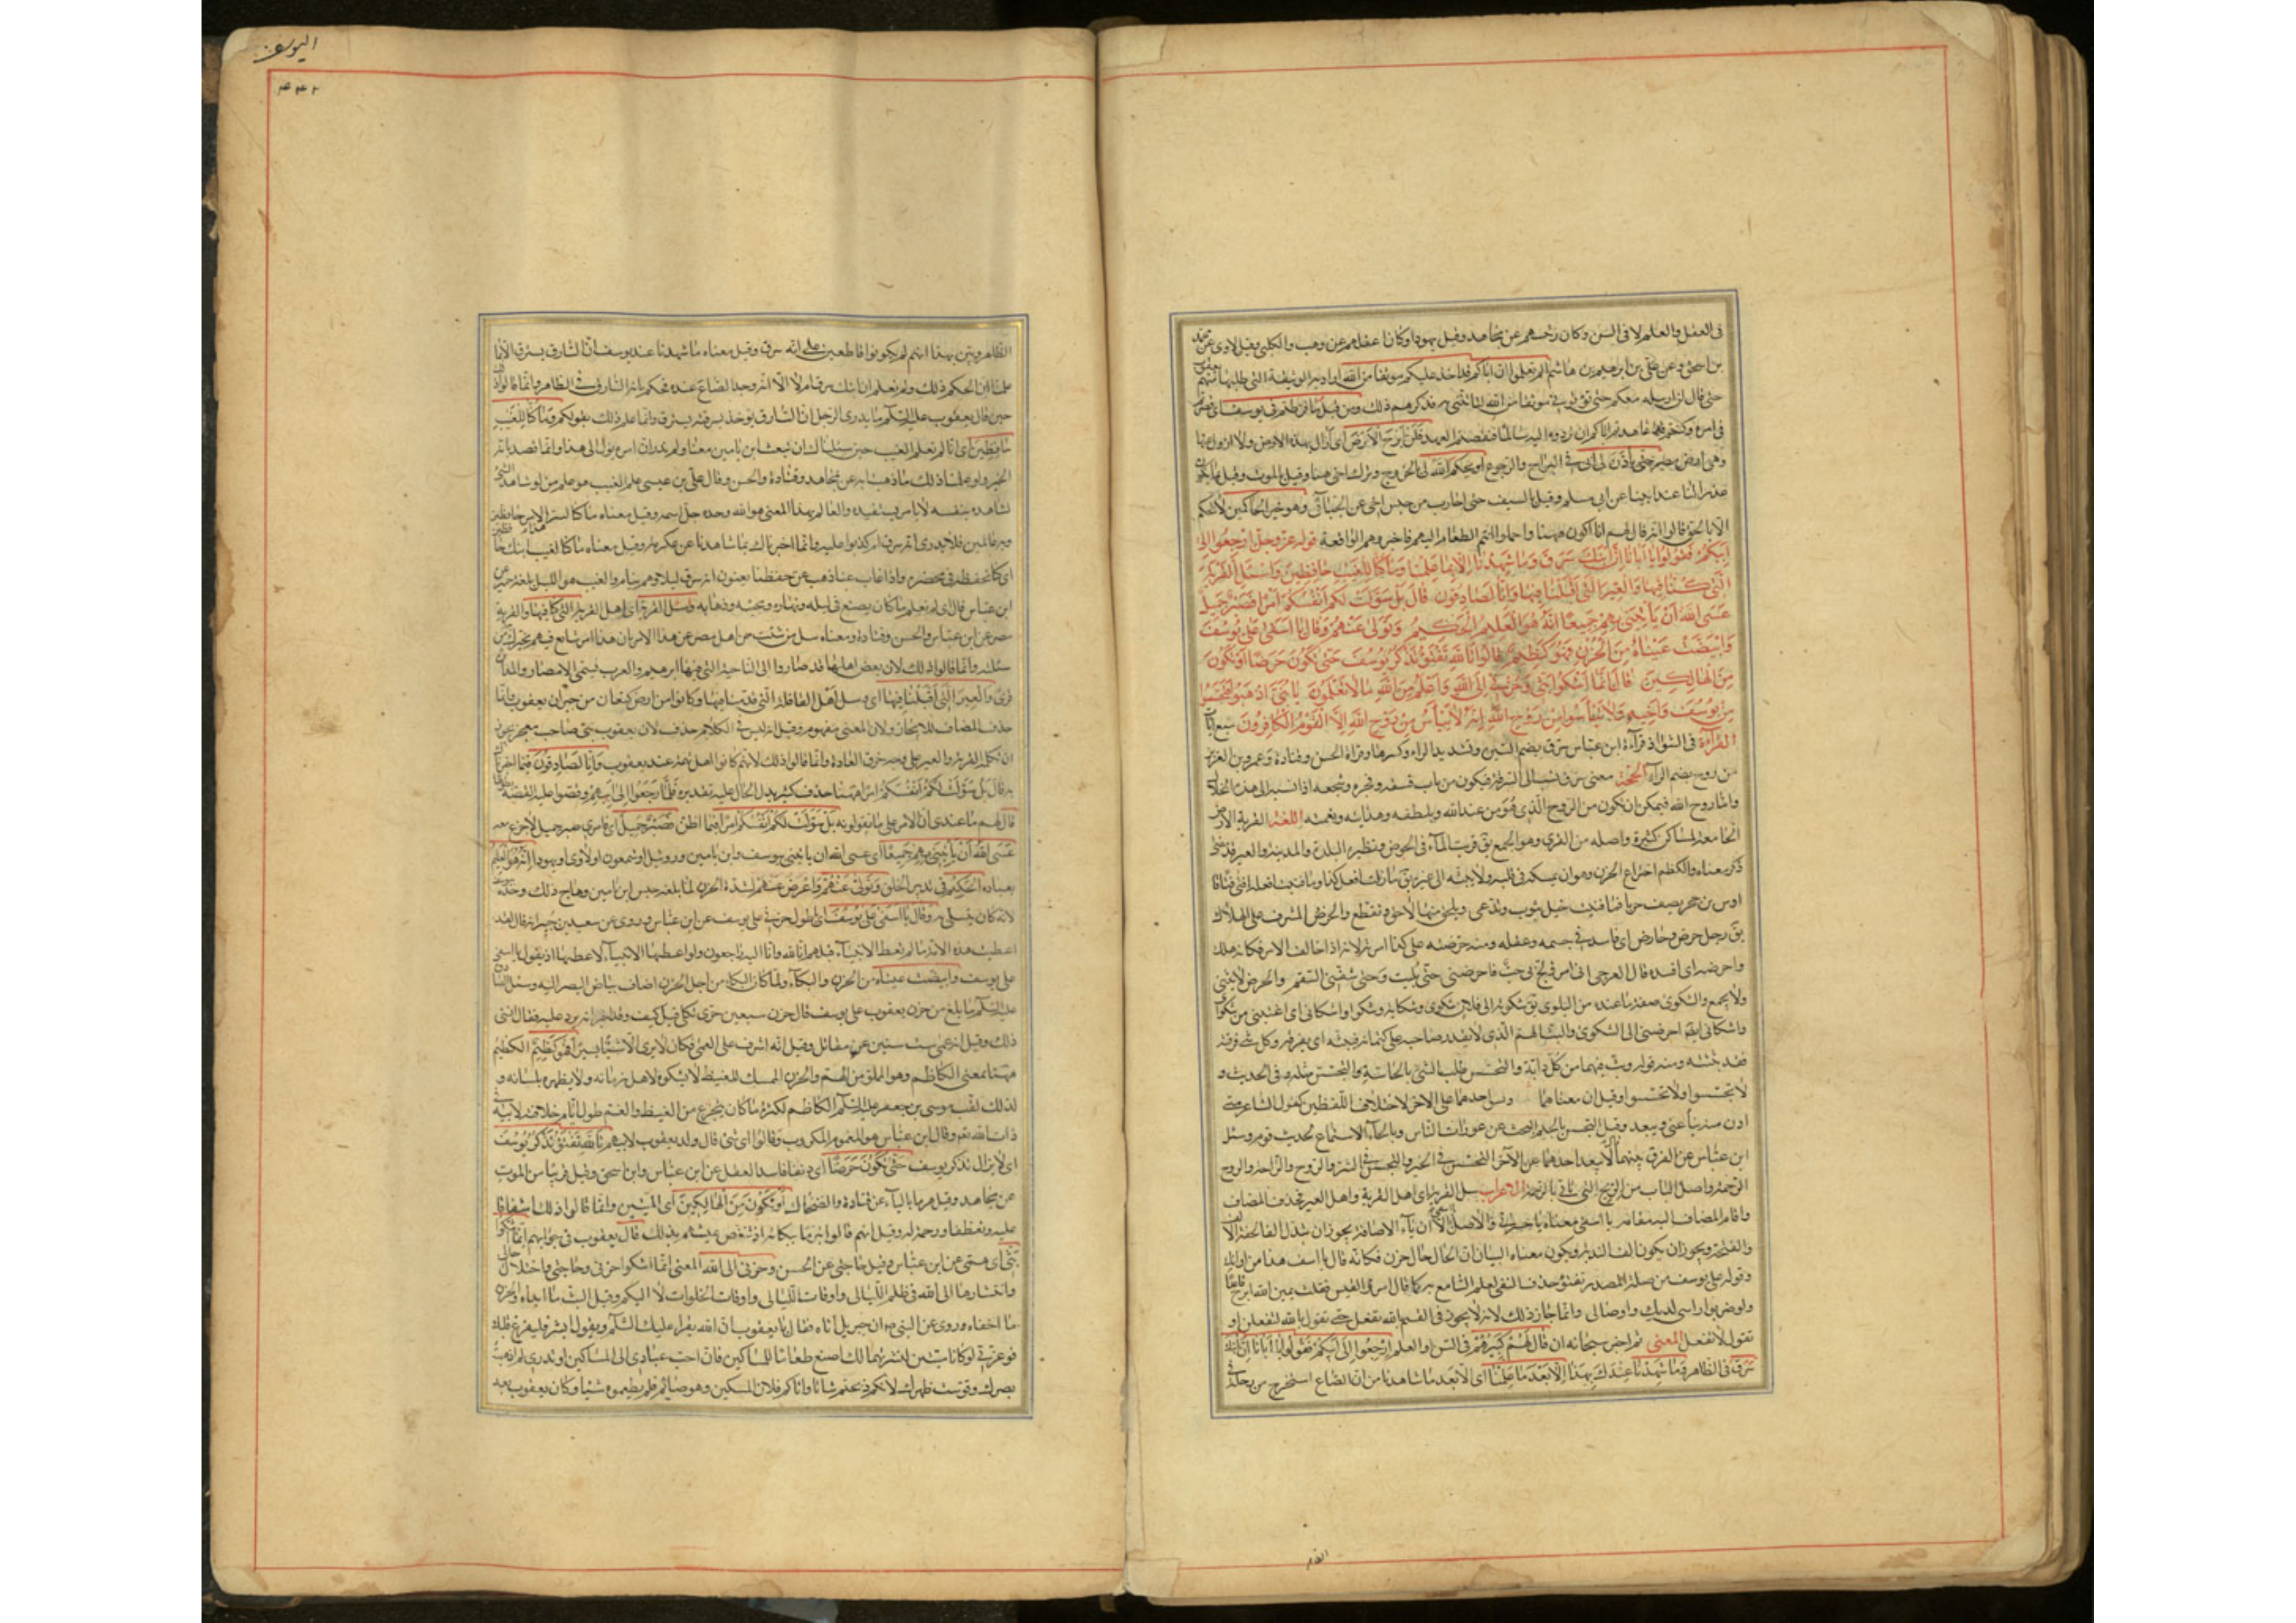 فى العقل والعلم لا فى السن وكان رئيسهم عن مجاهد وقيل يهودا وكان اعقلهم عن وهب والكلبى وقيل لاوى عن محمد
بن اسحق وعن على بن ابرهيم بن هاشم الم تعلموا ان اباكم قد اخذ عليكم موثقا من الله اراد به الوثيقة التى طلبها منهم يعقوب
حتى قال لن ارسله معكم حتى تؤتون موثقا من الله لتأتننى به فذكرهم ذلك ومن قبل ما فرطتم فى يوسف اى قصرتم
فى امره وكنتم عاهدتم اباكم ان تردوه اليه سالما فنقضتم العهد فلن ابرح الارض اى لا ازال بهذه الارض ولا ازول عنها
وهى ارض مصر حتى يأذن لى ابى فى البراح والرجوع او يحكم الله لى بالخروج وترك اخى هنا وقيل بالموت وقيل بما يكون
عذرا لنا عند ابينا عن ابى مسلم وقيل بالسيف حتى احارب من حبس اخى عن الجبائى وهو خير الحاكمين لا يحكم
الا بالحق قالوا انه قال لهم انا اكون ههنا واحملوا انتم الطعام اليهم فاخبروهم الواقعة قوله عز وجل ارجعوا الى
ابيكم فقولوا يا ابانا ان ابنك سرق وما شهدنا الا بما علمنا وما كنا للغيب حافظين واسئل القرية
التى كنا فيها والعير التى اقبلنا فيها وانا لصادقون قال بل سولت لكم انفسكم امرا فصبر جميل
عسى الله ان يأتينى بهم جميعا انه هو العليم الحكيم وتولى عنهم وقال يا اسفى على يوسف
وابيضت عيناه من الحزن فهو كظيم قالوا تالله تفتؤ تذكر يوسف حتى تكون حرضا او تكون
من الهالكين قال انما اشكوا بثى وحزنى الى الله واعلم من الله ما لا تعلمون يا بنى اذهبوا فتحسسوا
من يوسف واخيه ولا تيأسوا من روح الله انه لا ييأس من روح الله الا القوم الكافرون سبع آيات
القرآءة فى الشواذ قرآءة ابن عباس سرق بضم السين وتشديد الراء وكسرها وقراءة الحسن وقتادة وعمر بن العزيز
من روح بضم الرآء الحجة معنى سرق نسب الى السرقة فيكون من باب فسقه وفجره وشجعه اذا نسبه الى هذه الخلال
واما روح الله فيمكن ان يكون من الروح الذى هو من عند الله وبلطفه وهدايته ونعمته اللغة القرية الارض
الجامعة لمساكن كثيرة واصله من القرى وهو الجمع يق قريت المآء فى الحوض ونظيره البلدة والمدينة والعير قد مضى
ذكر معناه والكظم اجتراع الحزن وهو ان يمسكه فى قلبه ولا يبثه الى غيره يق ما زلت افعل كذا وما فتئت افعله افتئ فتئا قال
اوس بن حجر يصف حربا فما فتئت خيل تثوب وتدعى ويلحق منها لاحق وتقطع والحرض المشرف على الهلاك
يق رجل حرض وحارض اى فاسد فى جسمه وعقله ومنه حرضته على كذا امرته لانه اذا خالف الامر فكانه هلك
واحرضه اى افسده قال العرجى انى امرء لج بى حب فاحرضنى حتى بليت وحتى شفنى السقم والحرض لا يثنى
ولا يجمع والشكوى صفة ما عنده من البلوى يق شكوته الى فلان شكوى وشكاية وشكوا واشكانى اى اعتبنى من شكواى
واشكانى ايضا احرضنى الى الشكوى والبث الهم الذى لا يقدر صاحبه على كتمانه فيبثه اى يفرقه وكل شئ فرقته
فقد بثثته ومنه قوله وبث فيها من كل دابة والتحسس طلب الشئ بالحاسة والتجسس مثله وفى الحديث و
لا تحسسوا ولا تجسسوا وقيل ان معناهما واحد على الاخر لاختلاف اللفظين كقول الشاعر متى
ادن منه ينأ عنى ويبعد وقيل التجسس بالجيم البحث عن عورات الناس وبالحآء الاستماع لحديث قوم وسئل
ابن عباس عن الفرق بينهما لا يبعد احدهما عن الآخر التحسس فى الخير والتجسس فى الشر والروح والراحة والروح
الرحمة واصل الباب من الريح التى تأتى بالرحمة الاعراب سل القرية اى اهل القرية واهل العير فحذف المضاف
واقام المضاف اليه مقامه يا اسفى معناه يا حسرة والاصل الا ان يآء الاضافة يجوز ان تبدل الفا لخفة الالف
والفتحة ويجوز ان يكون الف الندبة ويكون معناه البيان ان الحال حال حزن فكانه قال يا اسف هذا من اوانك
وقوله على يوسف من صلة المصدر تفتؤ حذف النفى لعلم السامع به كما قال امرؤ القيس فقلت يمين الله ابرح قاعدا
ولو ضربوا رأسى لديك واوصالى وانما جاز ذلك لانه لا يجوز فى القسم تالله تفعل حتى تقول تالله لتفعلن او
تقول لا تفعل المعنى ثم اخبر سبحانه ان قال لهم كبيرهم فى السن والعلم ارجعوا الى ابيكم فقولوا يا ابانا ان ابنك
سرق فى الظاهر وما شهدنا عندك بهذا الا بعد ما علمنا اى الا بعد ما شاهدنا من ان الصاع استخرج من رحله فى
الظاهر
اليوسف
٤٤٢
الظاهر وبين بهذا انهم لم يكونوا قاطعين على انه سرق وقيل معناه ما شهدنا عند يوسف ان السارق يسترق الا بما
علمنا ان الحكم ذلك ولم نعلم ان ابنك سرق ام لا الا انه وجد الصاع عنده فحكم بانه السارق فى الظاهر وانما قالوا ذلك
حين قال يعقوب عليه السلام ما يدرى الرجل ان السارق يؤخذ بسرقته يسترق وانما علم ذلك بقولكم وما كنا للغيب
حافظين اى انا لم نعلم الغيب حين سئلناك ان تبعث ابن يامين معنا ولم ندر ان امره يؤل الى هذا وانما قصدنا به
الخير ولو علمنا ذلك ما ذهبنا به عن مجاهد وقتادة والحسن وقال على بن عيسى علم الغيب هو علم من لو شاهد الشئ
لشاهده بنفسه لا بامر يستفيده والعالم بهذا المعنى هو الله وحده جل اسمه وقيل معناه ما كنا لسر الامر حافظين
وبه عالمين فلا ندرى انه سرق ام كذبوا عليه وانما اخبرناك بما شاهدنا عن عكرمة وقيل معناه ما كنا لغيب ابنك حافظين
اى كنا نحفظه فى محضره واذا غاب عنا ذهب عن حفظنا يعنون انه سرق ليلا وهم نيام والغيب هو الليل بلغة حمير عن
ابن عباس قال اى لم نعلم ما كان يصنع فى ليله ونهاره ومجيئه وذهابه وسئل القرية اى اهل القرية التى كنا فيها والقرية
مصر عن ابن عباس والحسن وقتادة ومعناه سل من شئت من اهل مصر عن هذا الامر فان هذا امر شايع فيهم يخبرك من
سئلته وانما قالوا ذلك لان بعض اهلها قد صاروا الى الناحية التى فيها ابرهيم والعرب تسمى الامصار والمداين
قرى والعير التى اقبلنا فيها اى وسل اهل القافلة التى قدمنا فيها وكانوا من ارض كنعان من جيران يعقوب وانما
حذف المضاف للايجاز ولان المعنى مفهوم وقيل انه ليس فى الكلام حذف لان يعقوب نبى صاحب معجز يجوز
ان تكلمه القرية والعير على وجه خرق العادة وانما قالوا ذلك لانهم كانوا اهل تهمة عند يعقوب وانا لصادقون فيما اخبرناك
به قال بل سولت لكم انفسكم امرا ههنا حذف كثير يدل الحال عليه تقديره فلما رجعوا الى ابيهم وقصوا عليه القصة بطولها
قال لهم ما عندى ان الامر على ما تقولونه بل سولت لكم انفسكم امرا فيما اظن فصبر جميل اى فامرى صبر جميل لا جزع معه
عسى الله ان يأتينى بهم جميعا اى عسى الله ان يأتينى بيوسف وابن يامين وروبيل او شمعون او لاوى او يهودا انه هو العليم
بعباده الحكيم فى تدبير الخلق وتولى عنهم واعرض عنهم لشدة الحزن لما بلغه حبس ابن يامين وهاج ذلك وجده بيوسف
لانه كان يتسلى به وقال يا اسفى على يوسف اى يا طول حزنى على يوسف عن ابن عباس وروى عن سعيد بن جبير انه قال لقد
اعطيت هذه الامة ما لم يعط الانبيآء قبلهم انا لله وانا اليه راجعون ولو اعطيها الانبيآء لاعطيها اذ يقول يا اسفى
على يوسف وابيضت عيناه من الحزن والبكآء ولما كان البكاء من اجل الحزن اضاف بياض البصر اليه وسئل الصادق
عليه السلام ما بلغ من حزن يعقوب على يوسف قال حزن سبعين حرى ثكلى قيل كيف وقد اخبر انه يرد عليه فقال انسى
ذلك وقيل انه عمى ست سنين عن مقاتل وقيل انه اشرف على العمى فكان لا يرى الا شيئا يسيرا فهو كظيم الكظيم
ههنا بمعنى الكاظم وهو المملؤ من الهم والحزن الممسك للغيظ لا يشكوه لاهل زمانه ولا يظهره بلسانه و
لذلك لقب موسى بن جعفر عليه السلام الكاظم لكثرة ما كان يتجرع من الغيظ والغم طول ايام خلافته لابيه فى
ذات الله تعالى وقال ابن عباس هو المغموم المكروب وقالوا اى شئ قال ولد يعقوب لابيهم تالله تفتؤ تذكر يوسف
اى لا تزال تذكر يوسف حتى تكون حرضا اى دنفا فاسد العقل عن ابن عباس وابن اسحق وقيل قريبا من الموت
عن مجاهد وقيل هرما باليا عن قتادة والضحاك او تكون من الهالكين اى الميتين وانما قالوا ذلك اشفاقا
عليه وتعطفا ورحمة له وقيل انهم قالوا تبرما ببكائه اذ تنغص عيشهم بذلك قال يعقوب فى جوابهم انما اشكوا
بثى اى همى عن ابن عباس وقيل حاجتى عن الحسن وحزنى الى الله المعنى انما اشكوا حزنى وحاجتى واختلال حالى
وانتشارها الى الله فى ظلم الليالى واوقات الليالى واوقات الخلوات لا اليكم وقيل البث ما ابداه والحزن
ما اخفاه وروى عن النبى ص ان جبريل اتاه فقال يا يعقوب ان الله يقرأ عليك السلام ويقول ابشر فليفرح قلبك
فوعزتى لو كانا ميتين لنشرتهما لك اصنع طعاما للمساكين فان احب عبادى الى المساكين او تدرى لم اذهبت
بصرك وقوست ظهرك لانكم ذبحتم شاة واتاكم فلان المسكين وهو صائم فلم تطعموه شيئا وكان يعقوب بعد